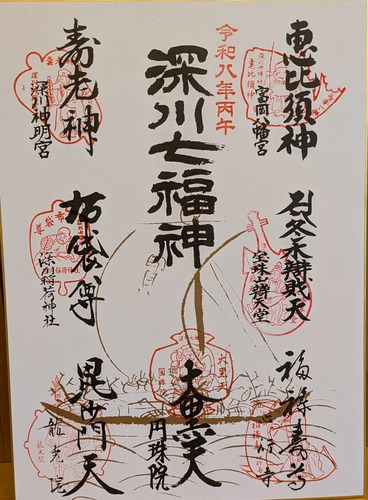 令和八年丙午
深川七福神
恵比須神
富岡八幡宮
冬木辨戝天
宝珠山辯天堂
福禄寿尊
心行寺
大黒天
円珠院
寿老神
深川神明宮
布袋尊
深川稲荷神社
毘沙門天
龍光院